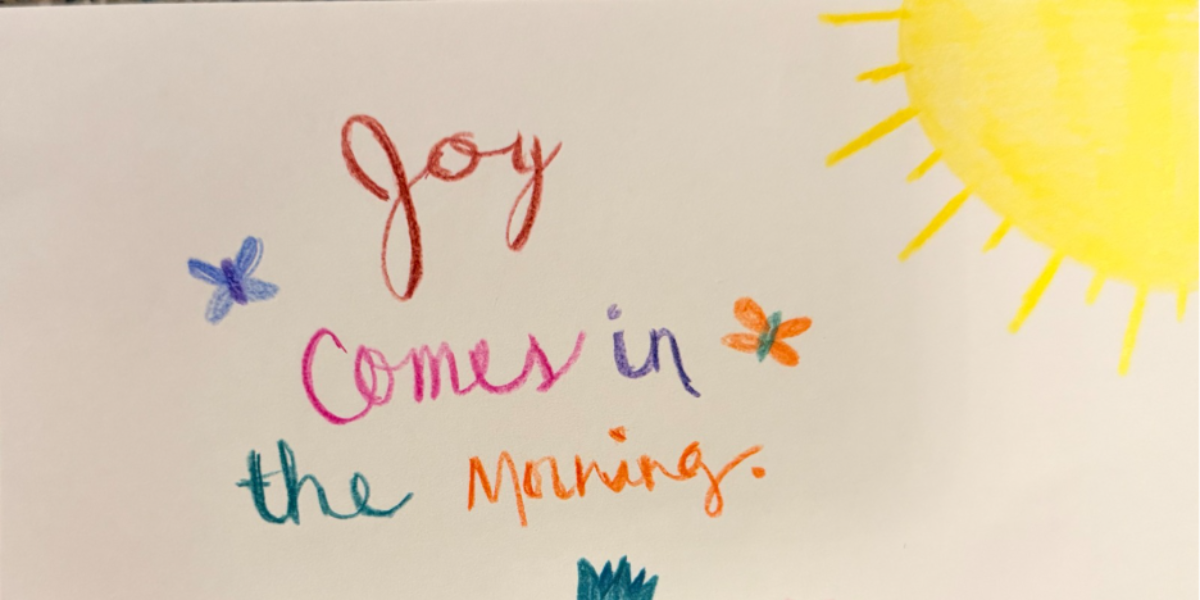 Joy
Comes in
the Morning.